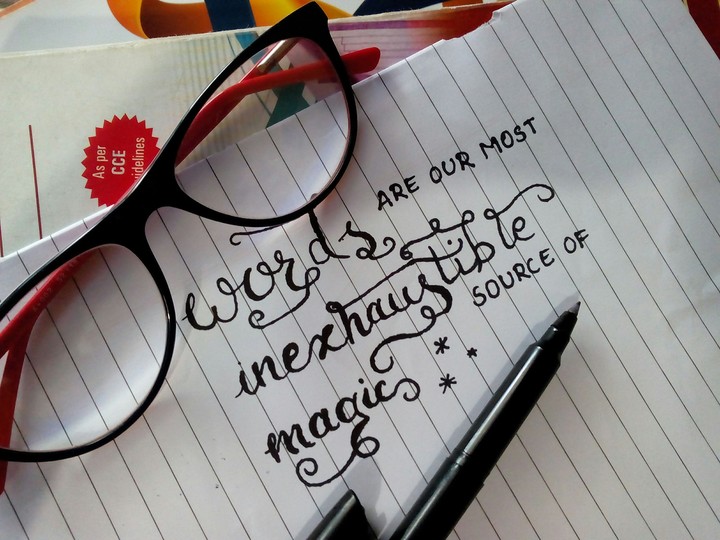 As per
CCE
idelines
words ARE OUR MOST
inexhaustible SOURCE OF
magic